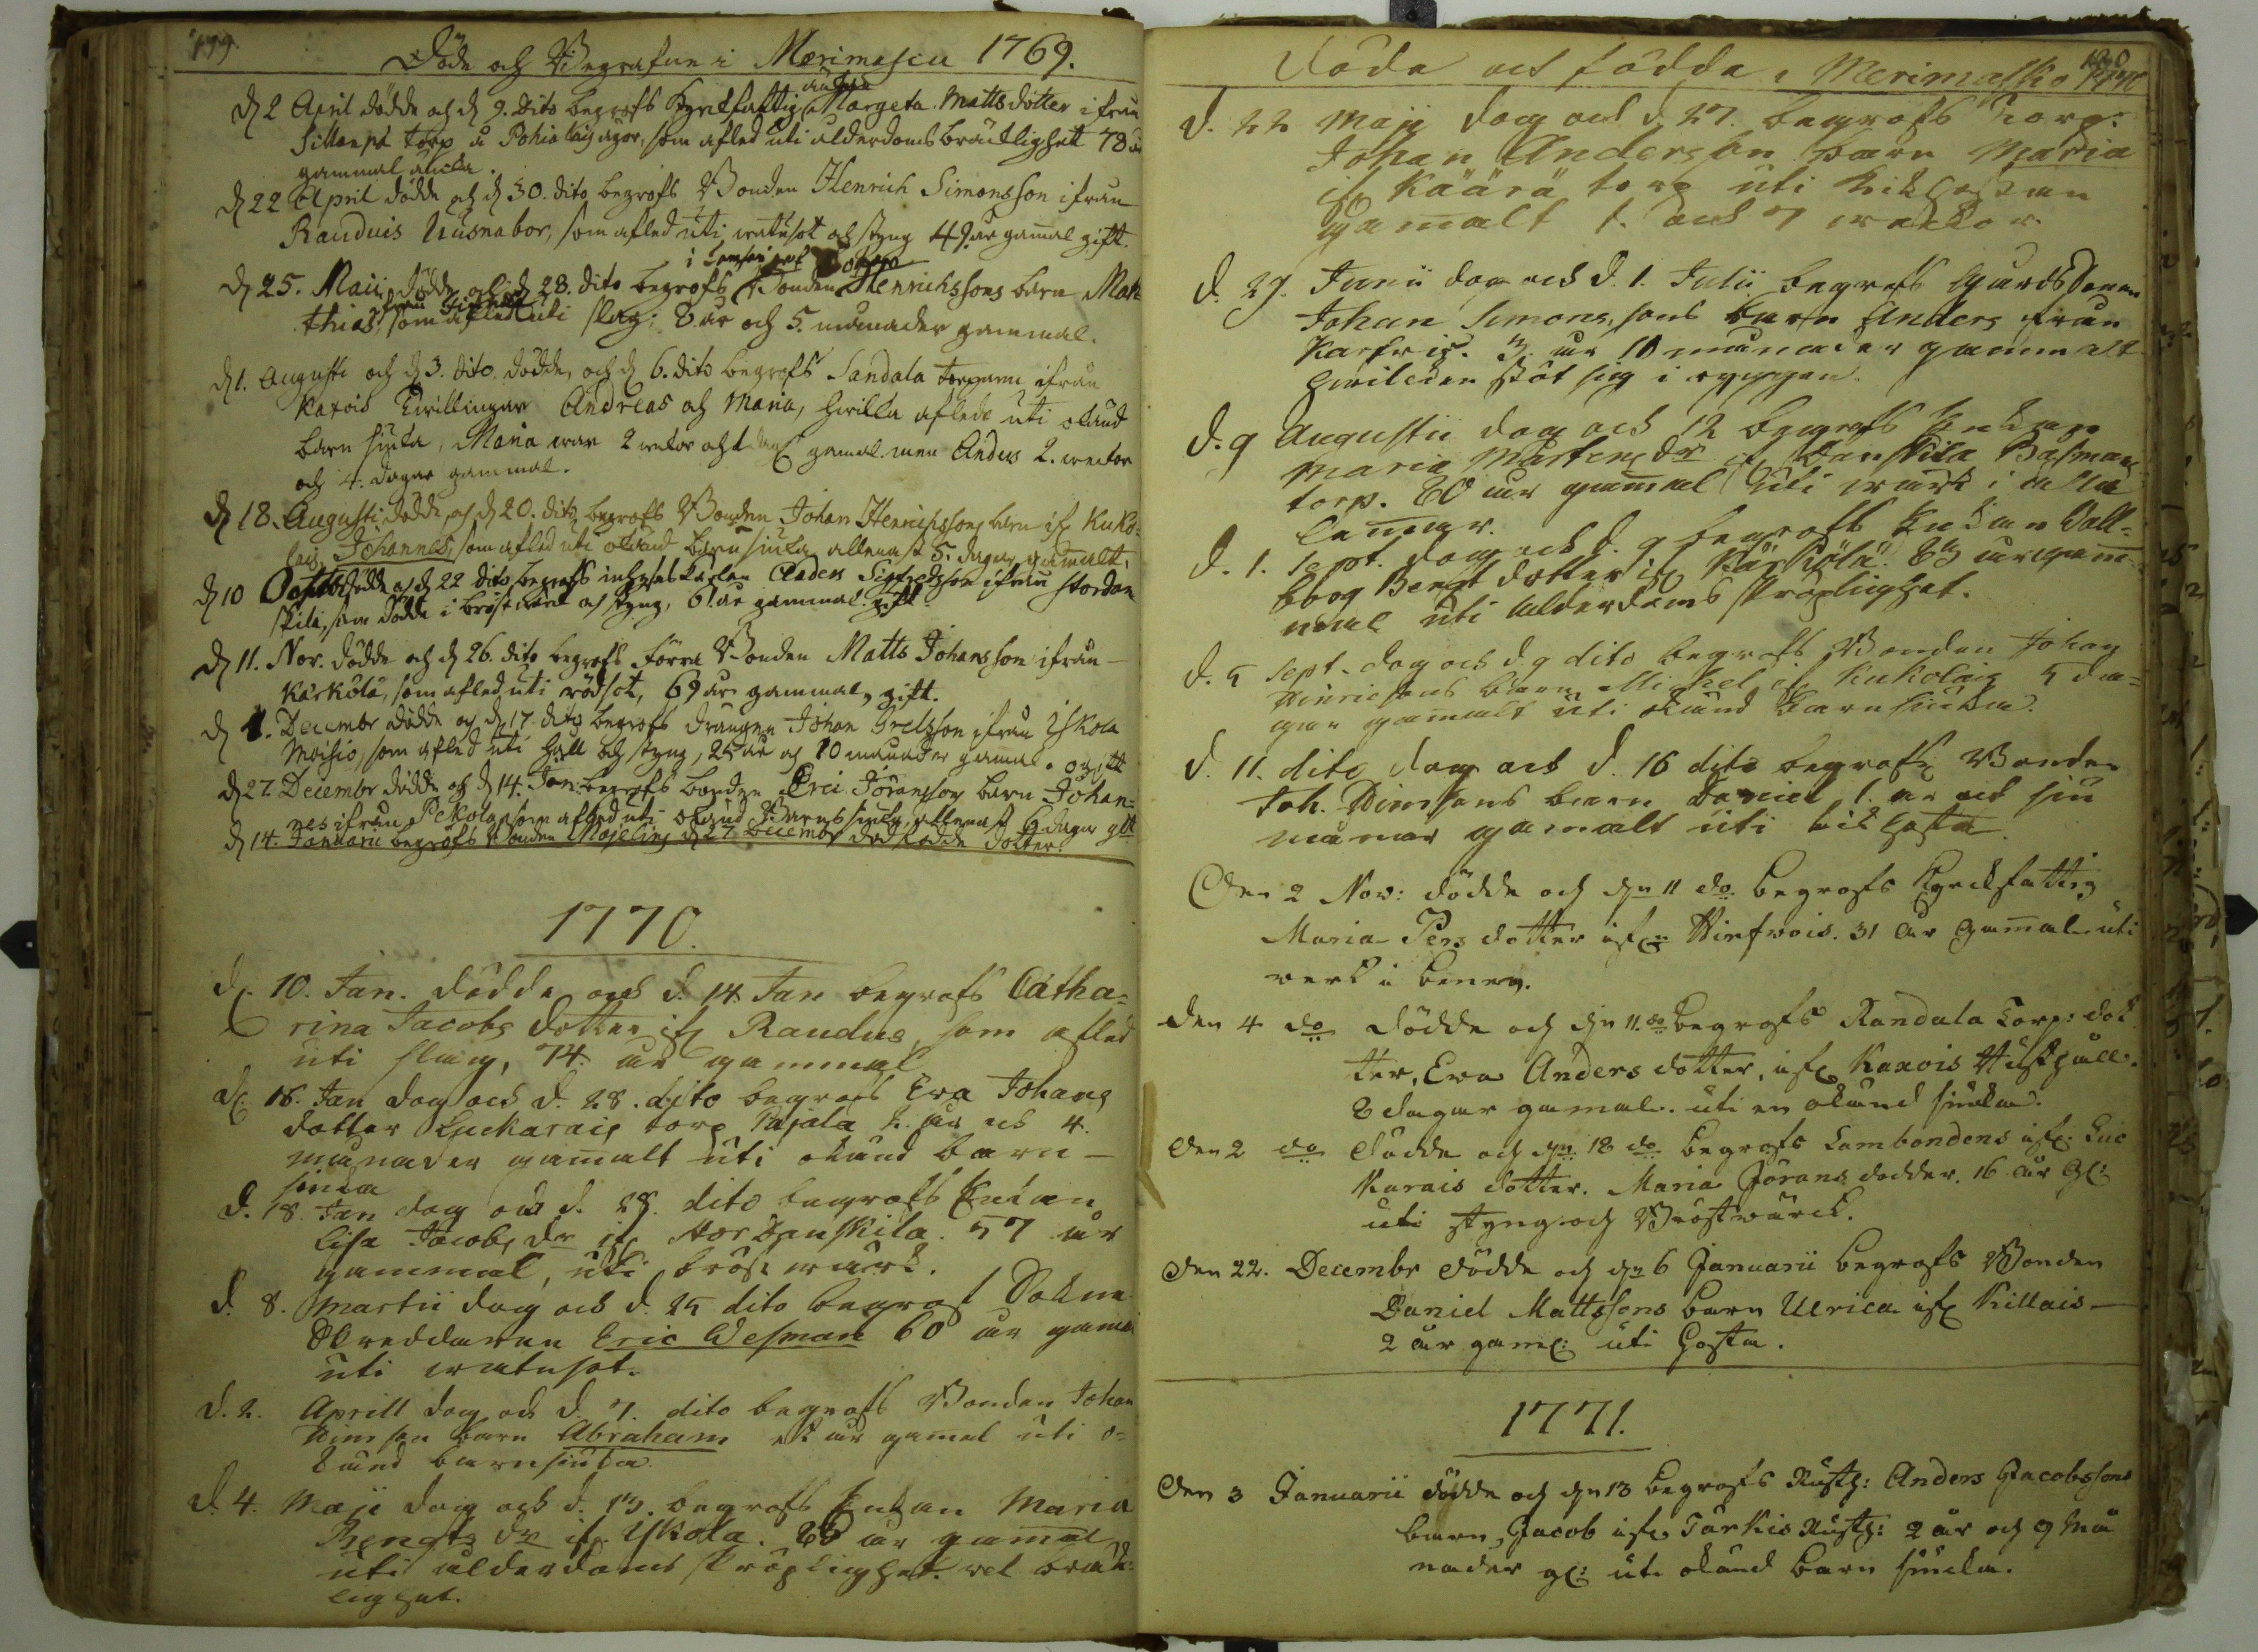 179.
Döde och Begrafne i Merimasku 1769.
änkan
d 2 April dödde och d 9. dito begrofs Kyrkfattig Margeta Mattsdotter ifrån
Sillanpä torp å Pohia lais ägor, som afled uti ålderdoms bräcklighet 78 år
gammal änka.
d 22 April dödde och d 30. dito begrofs Bonden Henrich Simonsson ifrån
Rauduis Uusnabor, som afled uti watusot och styng 49. år gam̄al gift.
d 25. Maii dödde och d 28. dito begrofs Bonden Henrichssons barn Mat
thias, som afled uti slag; 8 år och 5. månader gammal.
d 1. Augusti och d 3. dito dödde, och d 6. dito begrofs Sandala torparns ifrån
Karois Twillingar Andreas och Maria, hwilka aflede uti okänd
barn siuka, Maria war 2 wekor och 1 dag gamal men Anders 2. weckor
och 4. dagar gammal.
d 18. Augusti dödde, och d 20. dito begrofs Bonden Johan Henrichssons barn if Kuko=
lais Johannes, som afled uti okänd barnsiuka allenast 5. dagar gamalt.
d 10 dödde och d 22 dito begrofs inhyses karlen Anders Sigfredsson ifrån Stordan
skila, som dödde i bröst wärk och styng, 61 år gammal. gift
d 11. Nov. dödde och d 26. dito begrofs förra Bonden Matts Johansson ifrån
Kärkölä, som afled uti rödsot, 69 år gammal, gift.
d 1. Decembr dödde och d 17. dito begrofs drängen Johan Grelsson ifrån Iskola
Moisio, som afled uti håll och styng, 25 år och 10 månader gamal. ogift
d 27 Decembr dödde och d 14. Jan: begrofs bonden Erci Jöransson barn Johan=
nes ifrån Pekola, som afled uti okänd Barnssiuka allenast 6 dagar glt
d 14. Januarii begrofs Bonden Majelins d 27 Decembr död födde dotter.
1770.
d. 10. Jan. dödde och d. 14 Jan begrofs Catha=
rina Jacobs dotter if Raudus, som afled
uti slag, 74. år gammal
d. 16. Jan dog och d. 28. dito begrofs Eva Johans
dotter Luckarais torp Pajala 2. år och 4.
månader gam̄alt uti okänd barn-
siuka
d. 18. Jan dog och d. 28. dito begrofs Enkan
Lisa Jacobs dr if Stor Danskila. 57 år
gammal, uti bröst wärk.
d. 8. Martii dog och d. 25 dito begrofs Sokne
Skreddaren Eric Wesman 60 år gamal
uti watusot.
d. 2. Aprill dog och d. 7. dito begrofs Bonden Johan
barn Abraham år gamal uti o=
känd barnsiuka.
d. 4. Maji dog och d. 13. begrofs Enkan Maria
Bengts dr if Iskola. 80 år gam̄al
uti ålderdoms skröplighet. vel bräck=
lighet.
Döda och födda i Merimasko 1770
180
d. 22 Maji dog och d. 27. begrofs Torp:
Johan Andersson barn Maria
if Käärä torp uti kikhostan
gam̄alt 1. och 7 weckor.
d. 29. Junii dog och d. 1. Julii begrofs
Johan Simons sons barn Anders från
3 år 10 månader gammalt
hwilcken stöt sig i ryggen.
d. 9 Augustii dog och 12 begrofs Enkan
Maria Mårtens dr if Danskila Basmans
torp. 80 år gam̄al uti wärk i alla
lemmar.
d. 1. Sept. dog och d. 9 begrofs Enkan Wall=
borg Bengts dotter if Kärkölä. 83 år gam̄=
mal uti ålderdoms skröplighet.
d. 5 Sept. dog och d. 9 dito begrofs Bonden Johan
Hinricsons barn Michel if Kukolais 5 da=
gar gam̄alt uti okänd barnsiuka.
d. 11. dito dog och d. 16 dito begrofs Bonden
Joh. barn Daniel 1. år och siu
månar gamalt uti kikhosta.
Den 2 Nov: dödde och dn 11 do begrofs Kyrckfattig
Maria Pers dotter ifrn 31 år gam̄al uti
werk i benen.
Den 4 do dödde och dn 11. do begrofs Randala Torp: dot
ter, Eva Anders dotter, if Karois
8 dagar gamal. uti en okänd siuka.
Den 2 do dödde och dn 18 do begrofs Lambondens if. Luc
karais dotter. Maria Jörans dodder. 16 år gl:
uti styng och Bröstwärck.
Den 22. Decembr dödde och dn 6 Januarii begrofs Bonden
Daniel Mattssons barn Ulrica if Killais-
2 år gaml: uti hosta.
1771.
Den 3 Januarii dödde och dn 13 begrofs Rusth: Anders Jacobssons
barn, Jacob if Turkis Rusth: 2 år och 9 må
nader gl: uti okänd barn siucka.